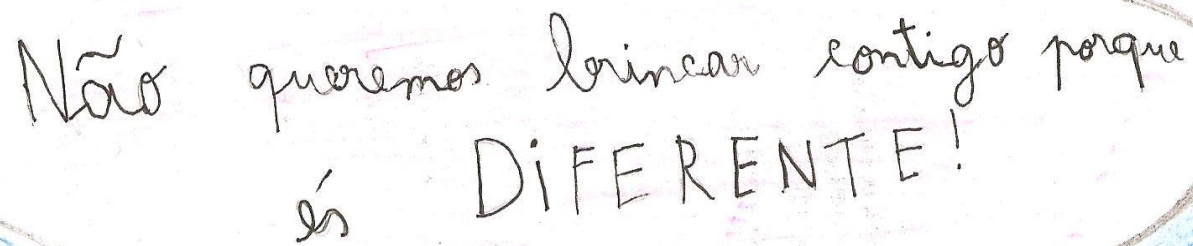 Não queremos brincar contigo porque
és DiFERENTE!